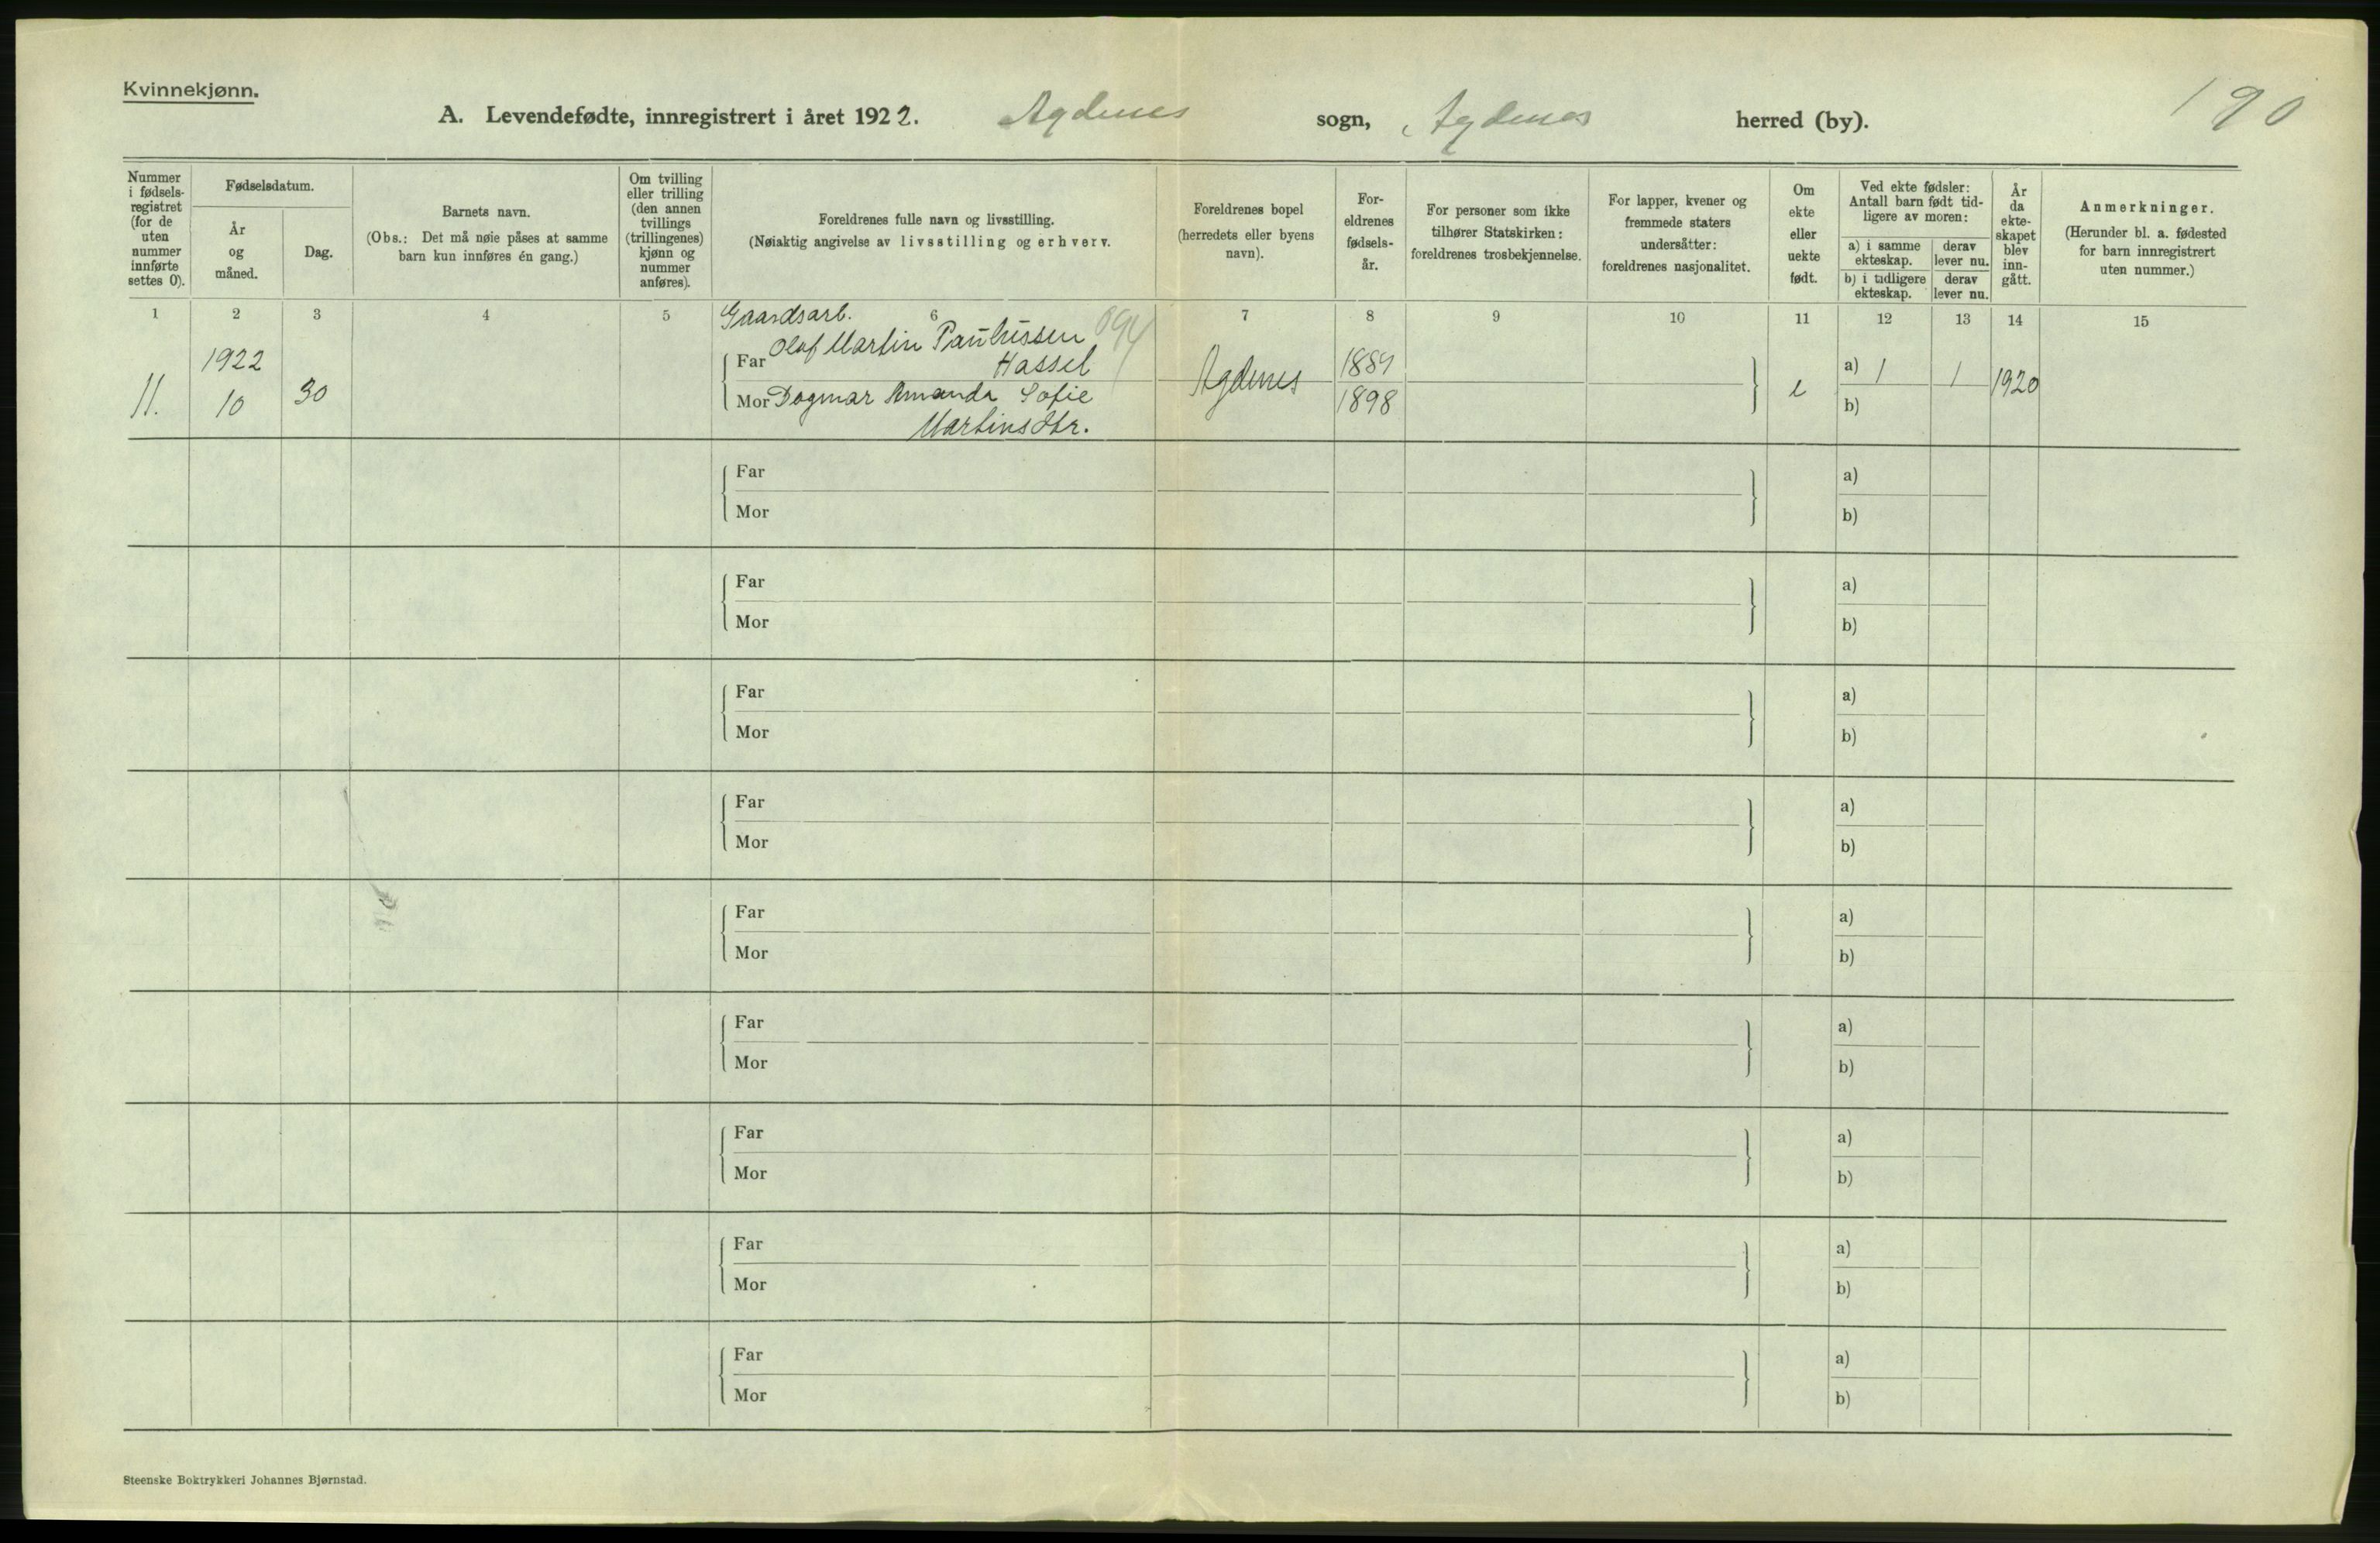 Kvinnekjønn.
A. Levendefødte, innregistrert i året 1922. Agdenes sogn, Agdenes herred (by).
190
Nummer i fødselsregistret (for de uten nummer innførte settes 0).
Fødselsdatum.
År og måned.
Dag.
Barnets navn.
(Obs.: Det må nøie påses at samme barn kun innføres én gang.)
Om tvilling eller trilling (den annen tvillings (trillingenes) kjønn og nummer anføres).
Foreldrenes fulle navn og livsstilling.
(Nøiaktig angivelse av livsstilling og erhverv.
Foreldrenes bopel (herredets eller byens navn).
Foreldrenes fødselsår.
For personer som ikke tilhører Statskirken: foreldrenes trosbekjennelse.
For lapper, kvener og fremmede staters undersåtter: foreldrenes nasjonalitet.
Om ekte eller uekte født.
Ved ekte fødsler: Antall barn født tidligere av moren:
a) i samme ekteskap. derav lever nu.
b) i tidligere ekteskap. derav lever nu.
År da ekteskapet blev inngått.
Anmerkninger.
(Herunder bl. a. fødested for barn innregistrert uten nummer.)
1 2 3 4 5 6 7 8 9 10 11 12 13 14 15
Gaardsarb. 094
11. 1922 10 30
Far Olaf Martin Paulussen Hassel
Mor Dagmar Amanda Sofie Martinsdtr.
Agdenes
1898
e
a) 1 1 1920
b)
Far a)
Mor b)
Far a)
Mor b)
Far a)
Mor b)
Far a)
Mor b)
Far a)
Mor b)
Far a)
Mor b)
Far a)
Mor b)
Far a)
Mor b)
Far a)
Mor b)
Steenske Boktrykkeri Johannes Bjørnstad.